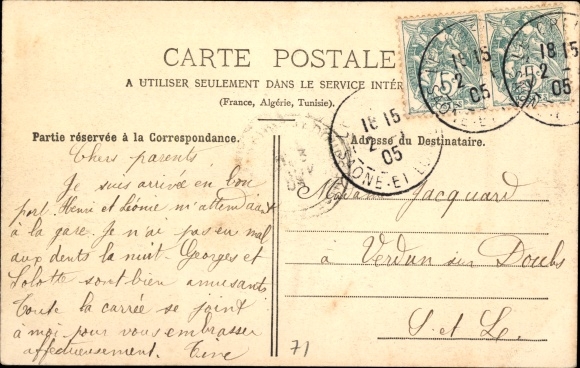 CARTE POSTALE
A UTILISER SEULEMENT DANS LE SERVICE INTÉR
(France, Algérie, Tunisie).
Partie réservée à la Correspondance.
Adresse du Destinataire.
Chers parents
Je suis arrivée en bon
port. Henri et Léonie m'attendaient
à la gare. Je n'ai pas eu mal
aux dents la nuit. Georges et
Lolotte sont bien amusants
Toute la carrée se joint
à moi pour vous embrasser
affectueusement. Tine
Jacquard
à Verdun sur Doubs
S et L.
71
18 15
2
05
SAONE-ET-L
18 15
2
05
18 15
2
05
5